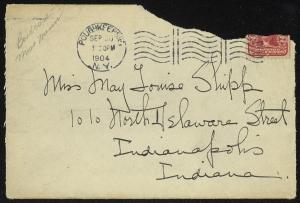 POUGHKEEPSIE
SEP
1904
N.Y.
Miss May Louise Shipp
1010 North Delaware Street
Indianapolis
Indiana.